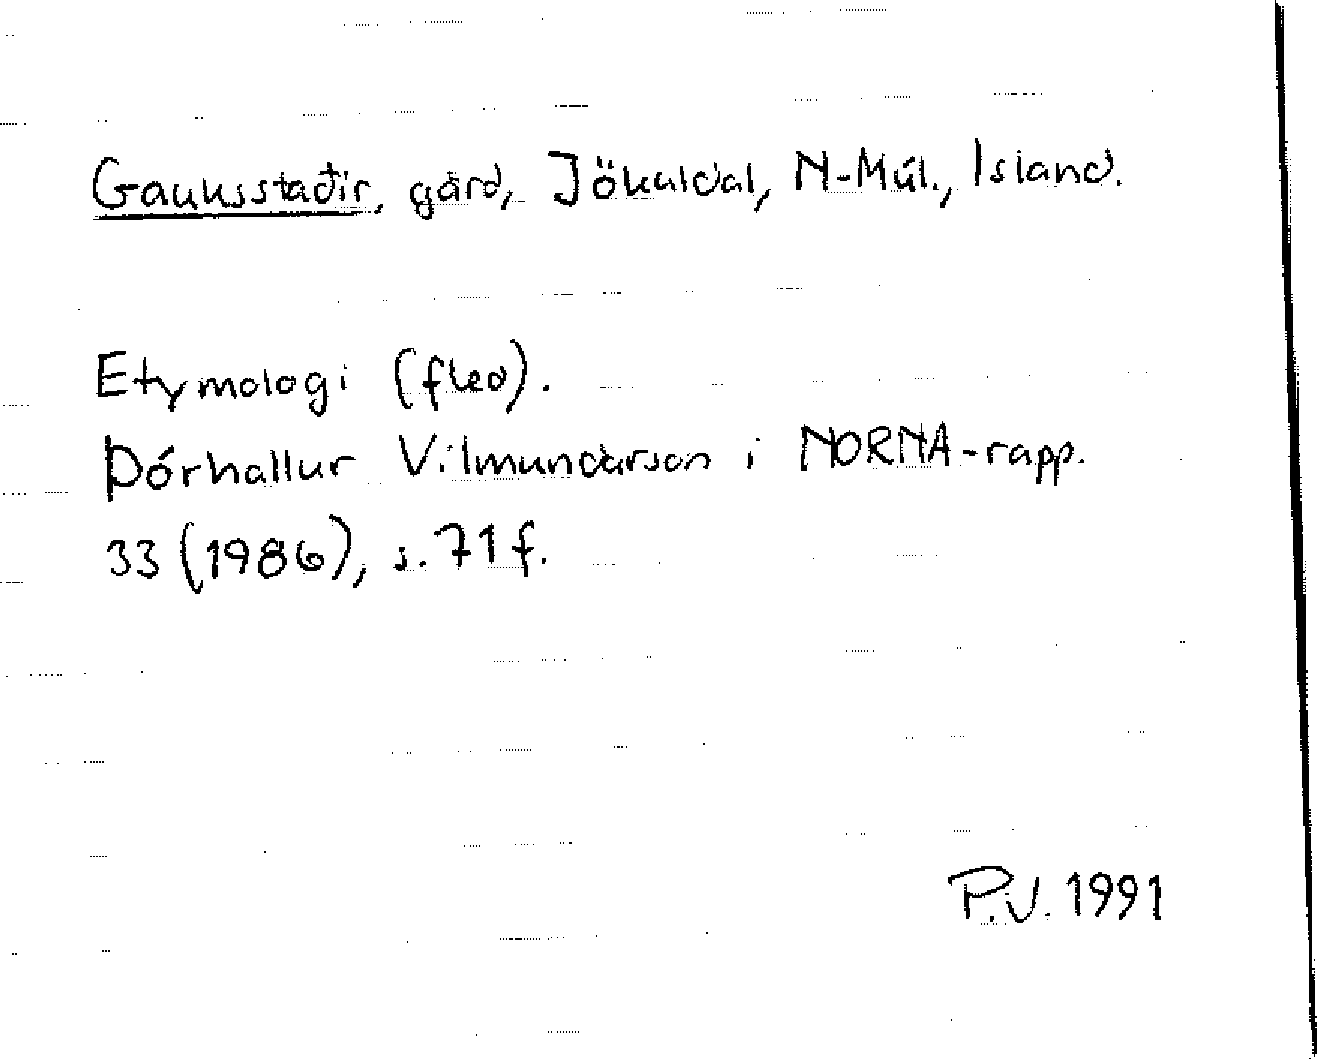 Gauksstaðir, gård, Jökuldal, N-Múl., Island.
Etymologi (fled).
Þórhallur Vilmundarson i NORNA-rapp.
33 (1986), s. 71 f.
P.V. 1991